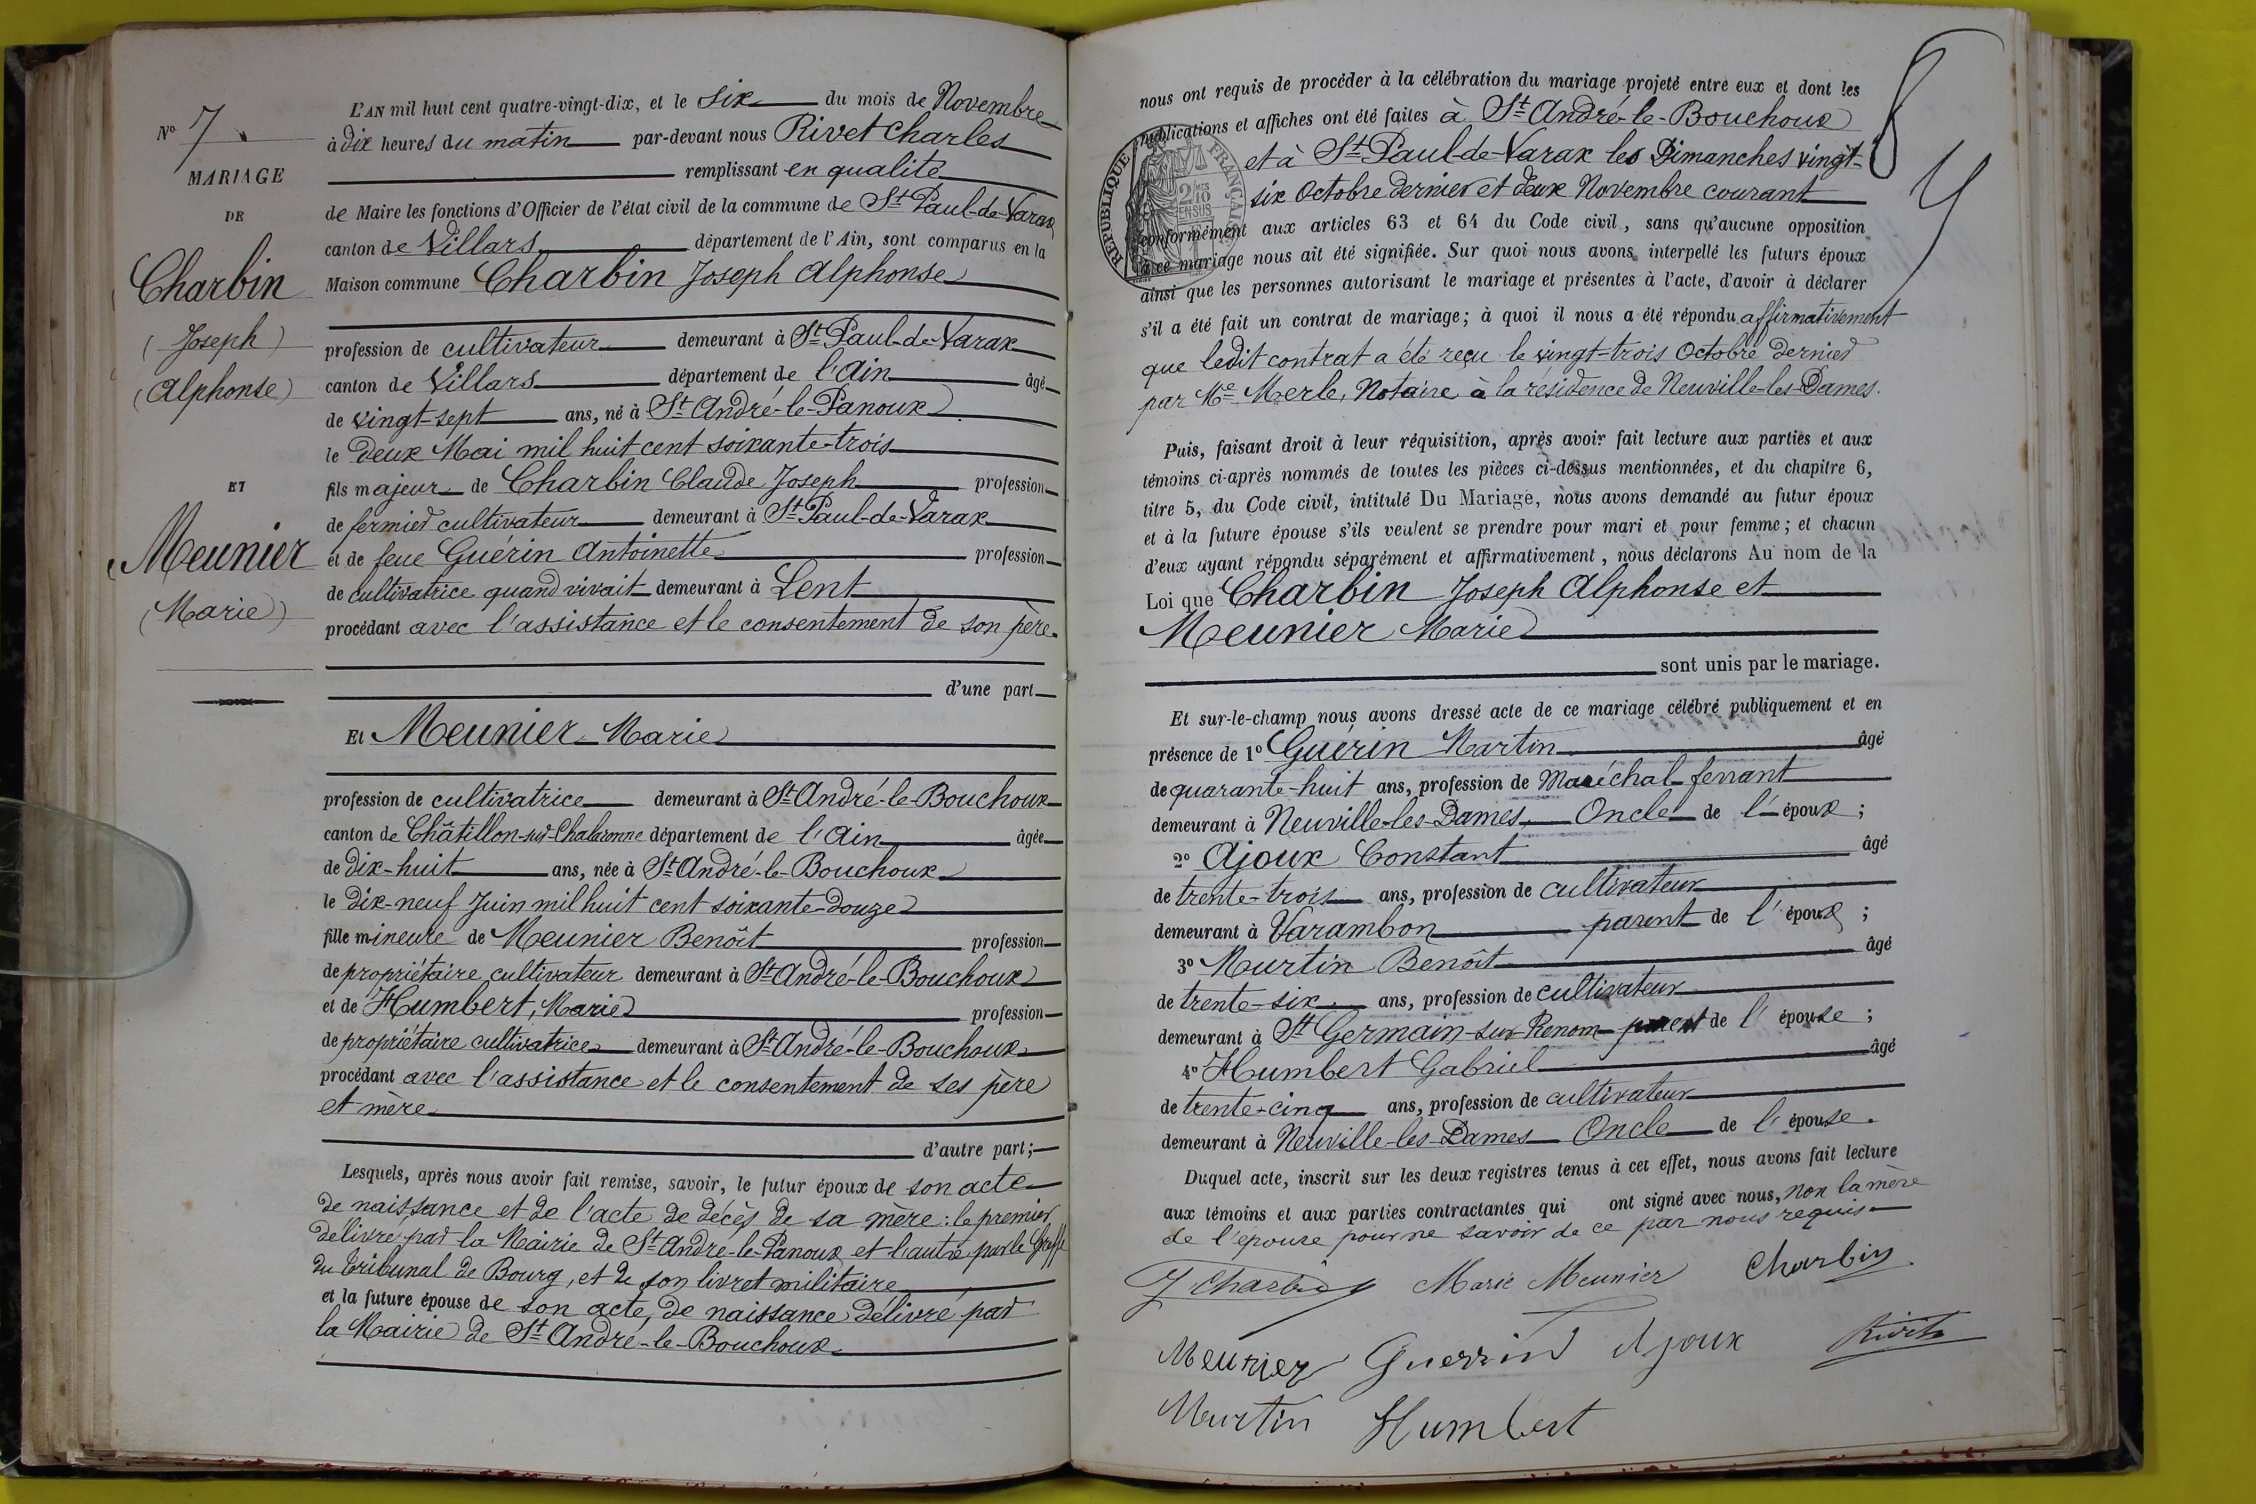 L'AN mil huit cent quatre-vingt-dix, et le six du mois de Novembre
à dix heures du matin par-devant nous Rivet Charles
remplissant en qualité
de Maire les fonctions d'Officier de l'état civil de la commune de St Paul-de-Varax
canton de Villars département de l'Ain, sont comparus en la
Maison commune Charbin Joseph Alphonse
profession de cultivateur demeurant à St Paul-de-Varax
canton de Villars département de l'Ain âgé
de vingt-sept ans, né à St André-le-Panoux
le deux Mai mil huit cent soixante-trois
fils majeur de Charbin Claude Joseph profession
de fermier cultivateur demeurant à St Paul-de-Varax
et de feue Guérin Antoinette profession
de cultivatrice quand vivait demeurant à Lent
procédant avec l'assistance et le consentement de son père.
d'une part
Et Meunier Marie
profession de cultivatrice demeurant à St André-le-Bouchoux
canton de Châtillon-sur-Chalaronne département de l'Ain âgée
de dix-huit ans, née à St André-le-Bouchoux
le dix-neuf Juin mil huit cent soixante-douze
fille mineure de Meunier Benoît profession
de propriétaire cultivateur demeurant à St André-le-Bouchoux
et de Humbert, Marie profession
de propriétaire cultivatrice demeurant à St André-le-Bouchoux
procédant avec l'assistance et le consentement de ses père
et mère
d'autre part;
Lesquels, après nous avoir fait remise, savoir, le futur époux de son acte
de naissance et de l'acte de décès de sa mère: le premier
délivré par la Mairie de St André-le-Panoux et l'autre par le Greffe
du Tribunal de Bourg, et de son livret militaire
et la future épouse de son acte, de naissance délivré par
la Mairie de St André-le-Bouchoux
No 7
MARIAGE
DE
Charbin
(Joseph)
(Alphonse)
ET
Meunier
(Marie)
8
nous ont requis de procéder à la célébration du mariage projeté entre eux et dont les
publications et affiches ont été faites à St André-le-Bouchoux
et à St Paul-de-Varax les Dimanches vingt-
six Octobre dernier et deux Novembre courant
conformément aux articles 63 et 64 du Code civil, sans qu'aucune opposition
à ce mariage nous ait été signifiée. Sur quoi nous avons interpellé les futurs époux
ainsi que les personnes autorisant le mariage et présentes à l'acte, d'avoir à déclarer
s'il a été fait un contrat de mariage; à quoi il nous a été répondu affirmativement
que ledit contrat a été reçu le vingt-trois Octobre dernier
par Me Merle, Notaire à la résidence de Neuville-les-Dames.
RÉPUBLIQUE FRANÇAISE
2/10 EN SUS
Puis, faisant droit à leur réquisition, après avoir fait lecture aux parties et aux
témoins ci-après nommés de toutes les pièces ci-dessus mentionnées, et du chapitre 6,
titre 5, du Code civil, intitulé Du Mariage, nous avons demandé au futur époux
et à la future épouse s'ils veulent se prendre pour mari et pour femme; et chacun
d'eux ayant répondu séparément et affirmativement, nous déclarons Au nom de la
Loi que Charbin Joseph Alphonse et
Meunier Marie
sont unis par le mariage.
Et sur-le-champ nous avons dressé acte de ce mariage célébré publiquement et en
présence de 1o Guérin Martin âgé
de quarante-huit ans, profession de Maréchal-ferrant
demeurant à Neuville-les-Dames, Oncle de l'époux;
2o Ajoux Constant âgé
de trente-trois ans, profession de cultivateur
demeurant à Varambon parent de l'époux;
3o Murtin Benoît âgé
de trente-six ans, profession de cultivateur
demeurant à St Germain-sur-Renom parent de l'épouse;
4o Humbert Gabriel âgé
de trente-cinq ans, profession de cultivateur
demeurant à Neuville-les-Dames Oncle de l'épouse.
Duquel acte, inscrit sur les deux registres tenus à cet effet, nous avons fait lecture
aux témoins et aux parties contractantes qui ont signé avec nous, non la mère
de l'épouse pour ne savoir de ce par nous requis
J Charbin Marie Meunier Charbin
Meunier Guerrin Ajoux Rivet
Murtin Humbert